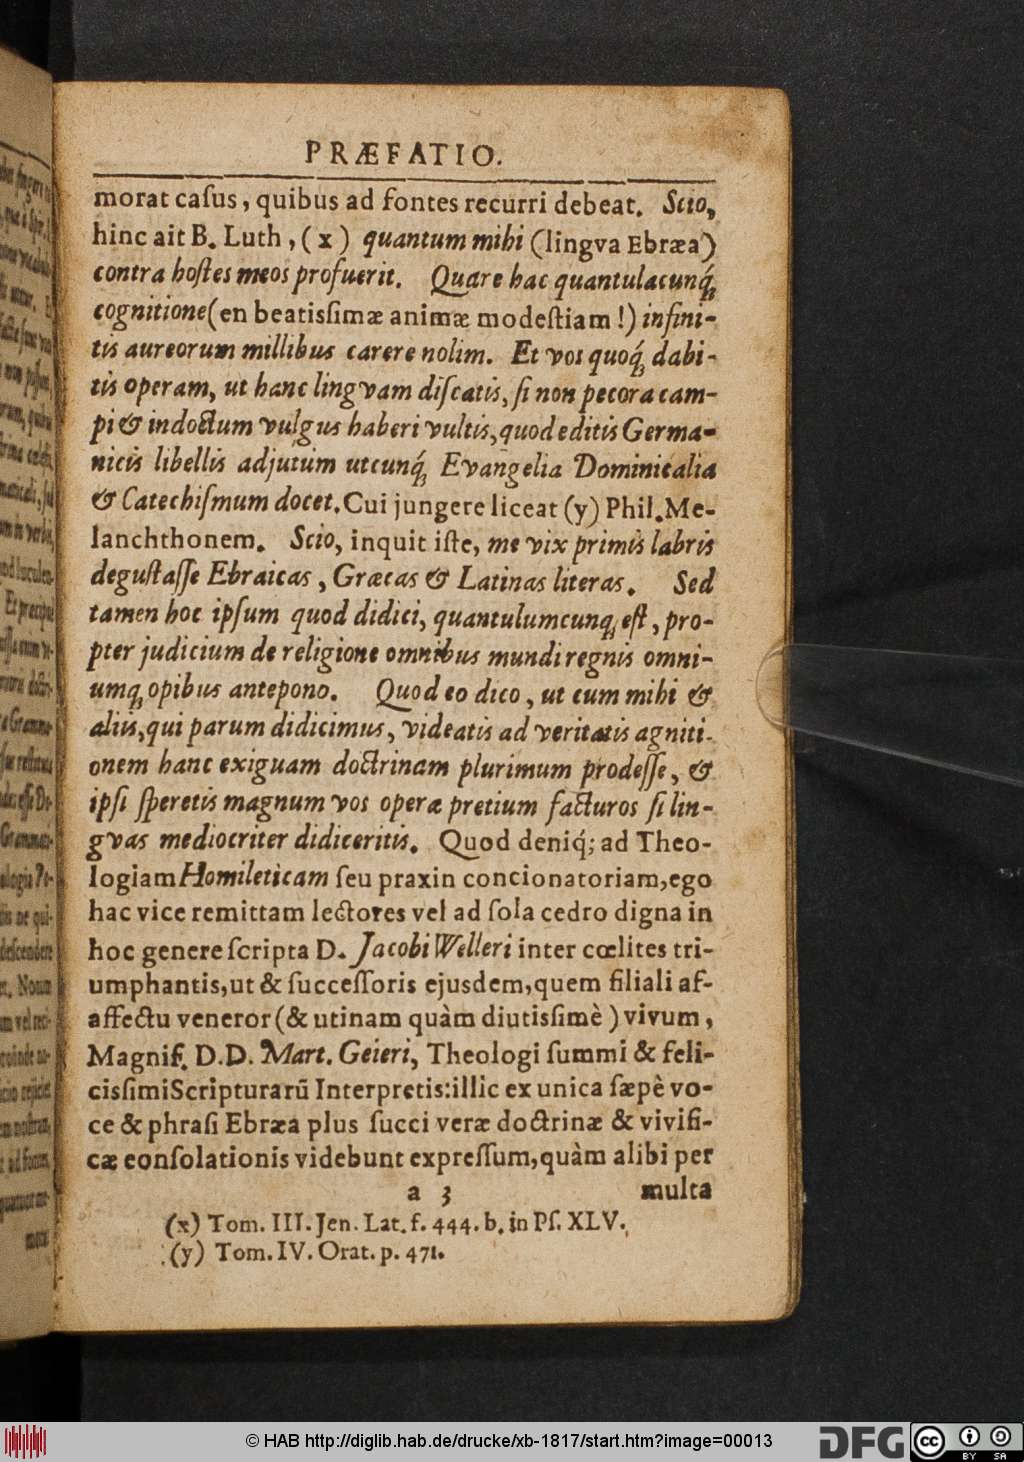 PRÆFATIO.
morat caſus, quibus ad fontes recurri debeat. Scio,
hinc ait B. Luth, (x) quantum mihi (lingva Ebræa)
contra hoſtes meos profuerit. Quare hac quantulacunq́;
cognitione (en beatisſimæ animæ modeſtiam!) infini-
tis aureorum millibus carere nolim. Et vos quoq́; dabi-
tis operam, ut hanc lingvam diſcatis, ſi non pecora cam-
pi & indoctum vulgus haberi vultis, quod editis Germa-
nicis libellis adjutum utcunq́; Evangelia Dominicalia
& Catechiſmum docet. Cui jungere liceat (y) Phil. Me-
lanchthonem. Scio, inquit iſte, me vix primis labris
deguſtaſſe Ebraicas, Græcas & Latinas literas. Sed
tamen hoc ipſum quod didici, quantulumcunq; eſt, pro-
pter judicium de religione omnibus mundi regnis omni-
umq; opibus antepono. Quod eo dico, ut cum mihi &
aliis, qui parum didicimus, videatis ad veritatis agniti-
onem hanc exiguam doctrinam plurimum prodeſſe, &
ipſi ſperetis magnum vos operæ pretium facturos ſi lin-
gvas mediocriter didiceritis. Quod deniq́; ad Theo-
logiam Homileticam ſeu praxin concionatoriam, ego
hac vice remittam lectores vel ad ſola cedro digna in
hoc genere ſcripta D. Jacobi Welleri inter cœlites tri-
umphantis, ut & ſucceſſoris ejusdem, quem filiali af-
affectu veneror (& utinam quàm diutisſimè) vivum,
Magnif. D.D. Mart. Geieri, Theologi ſummi & feli-
cisſimi Scripturarũ Interpretis: illic ex unica ſæpè vo-
ce & phraſi Ebræa plus ſucci veræ doctrinæ & vivifi-
cæ conſolationis videbunt expreſſum, quàm alibi per
a 3 multa
(x) Tom. III. Jen. Lat. f. 444. b. in Pſ. XLV.
(y) Tom. IV. Orat. p. 471.
© HAB http://diglib.hab.de/drucke/xb-1817/start.htm?image=00013
DFG
cc
BY SA